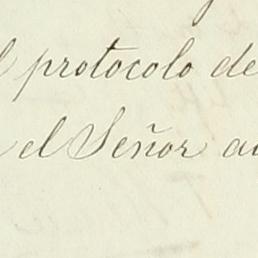 protocolo de
el Señor